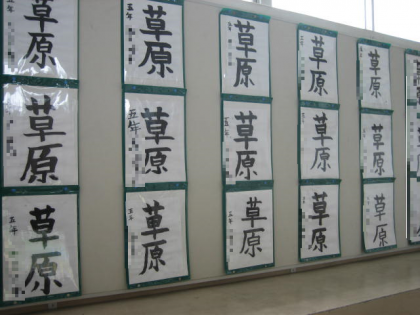 五年 草原
五年 草原
五年 草原
草原
草原
五年 草原
五年 草原
五年 草原
草原
草原
五年 草原
五年 草原
五年 草原
草原
草原